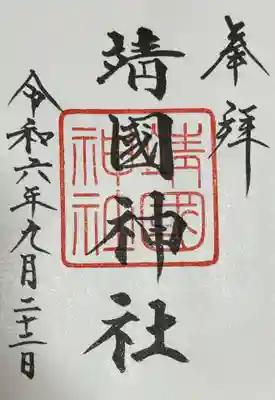 奉拝
靖國神社
靖國神社
令和六年九月二十二日